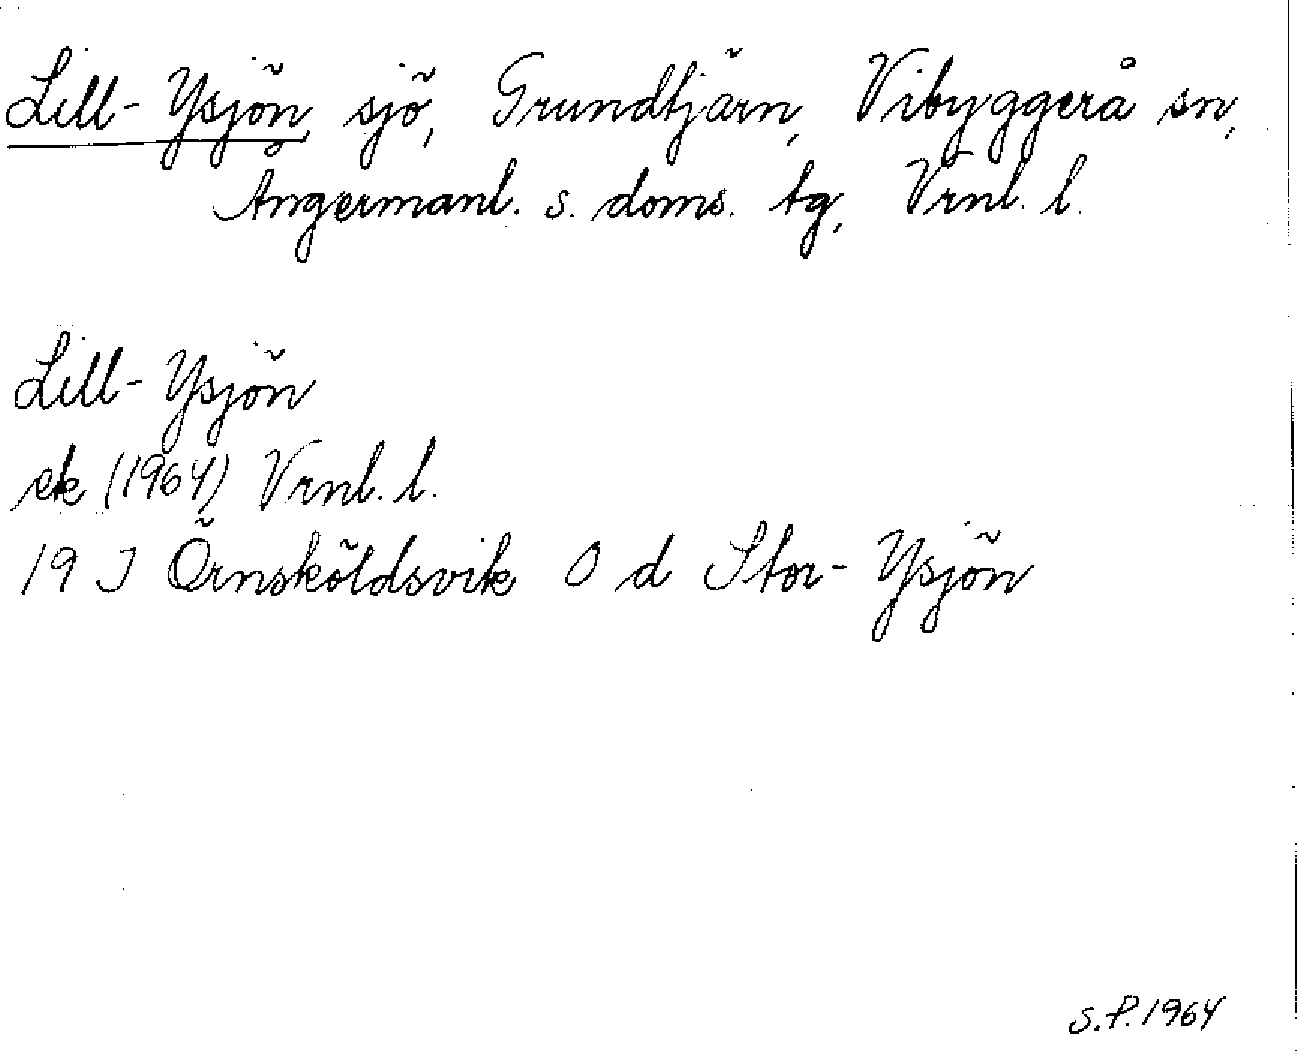 Lill-Ysjön, sjö, Grundtjärn, Vibyggerå sn,
Ångermanl. s. doms. tg, Vrnl. l.
Lill-Ysjön
ek (1964) Vrnl. l.
19 J Örnsköldsvik O d Stor-Ysjön
S.P. 1964